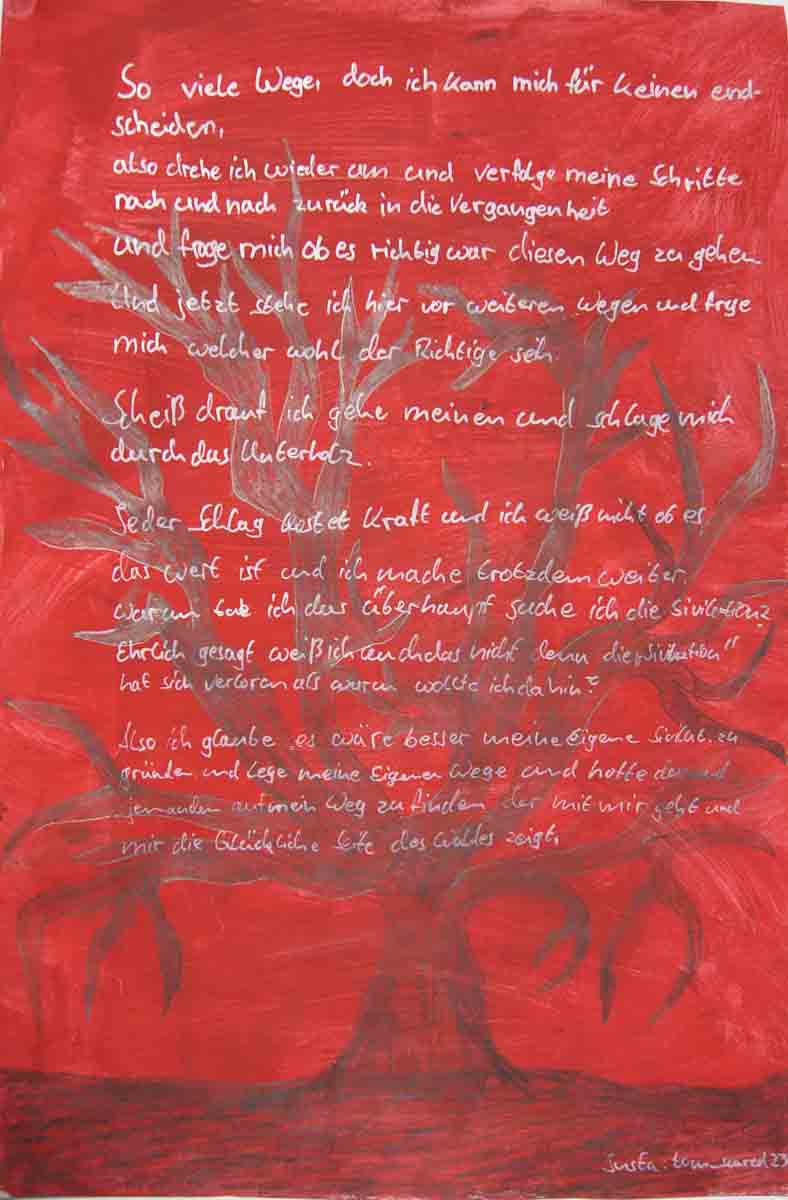 So viele Wege, doch ich kann mich für keinen end-
scheiden,
also drehe ich wieder um und verfolge meine Schritte
nach und nach zurück in die Vergangenheit
und frage mich ob es richtig war diesen Weg zu gehen
Und jetzt stehe ich hier vor weiteren Wegen und frage
mich welcher wohl der Richtige sein.
Scheiß drauf ich gehe meinen und schlage mich
durch das Unterholz.
Jeder Schlag kostet Kraft und ich weiß nicht ob es
das wert ist und ich mache trotzdem weiter.
warum ich das überhaupt suche ich die
Ehrlich gesagt weiß ich auch das nicht denn die
hat sich verloren als warum wollte ich dahin?
Also ich glaube es wäre besser meine Eigene zu
gründen und lege meine Eigenen Wege und hoffe
jemanden auf mein Weg zu finden der mit mir geht und
mir die Glückliche Seite des Waldes zeigt.
Insta: